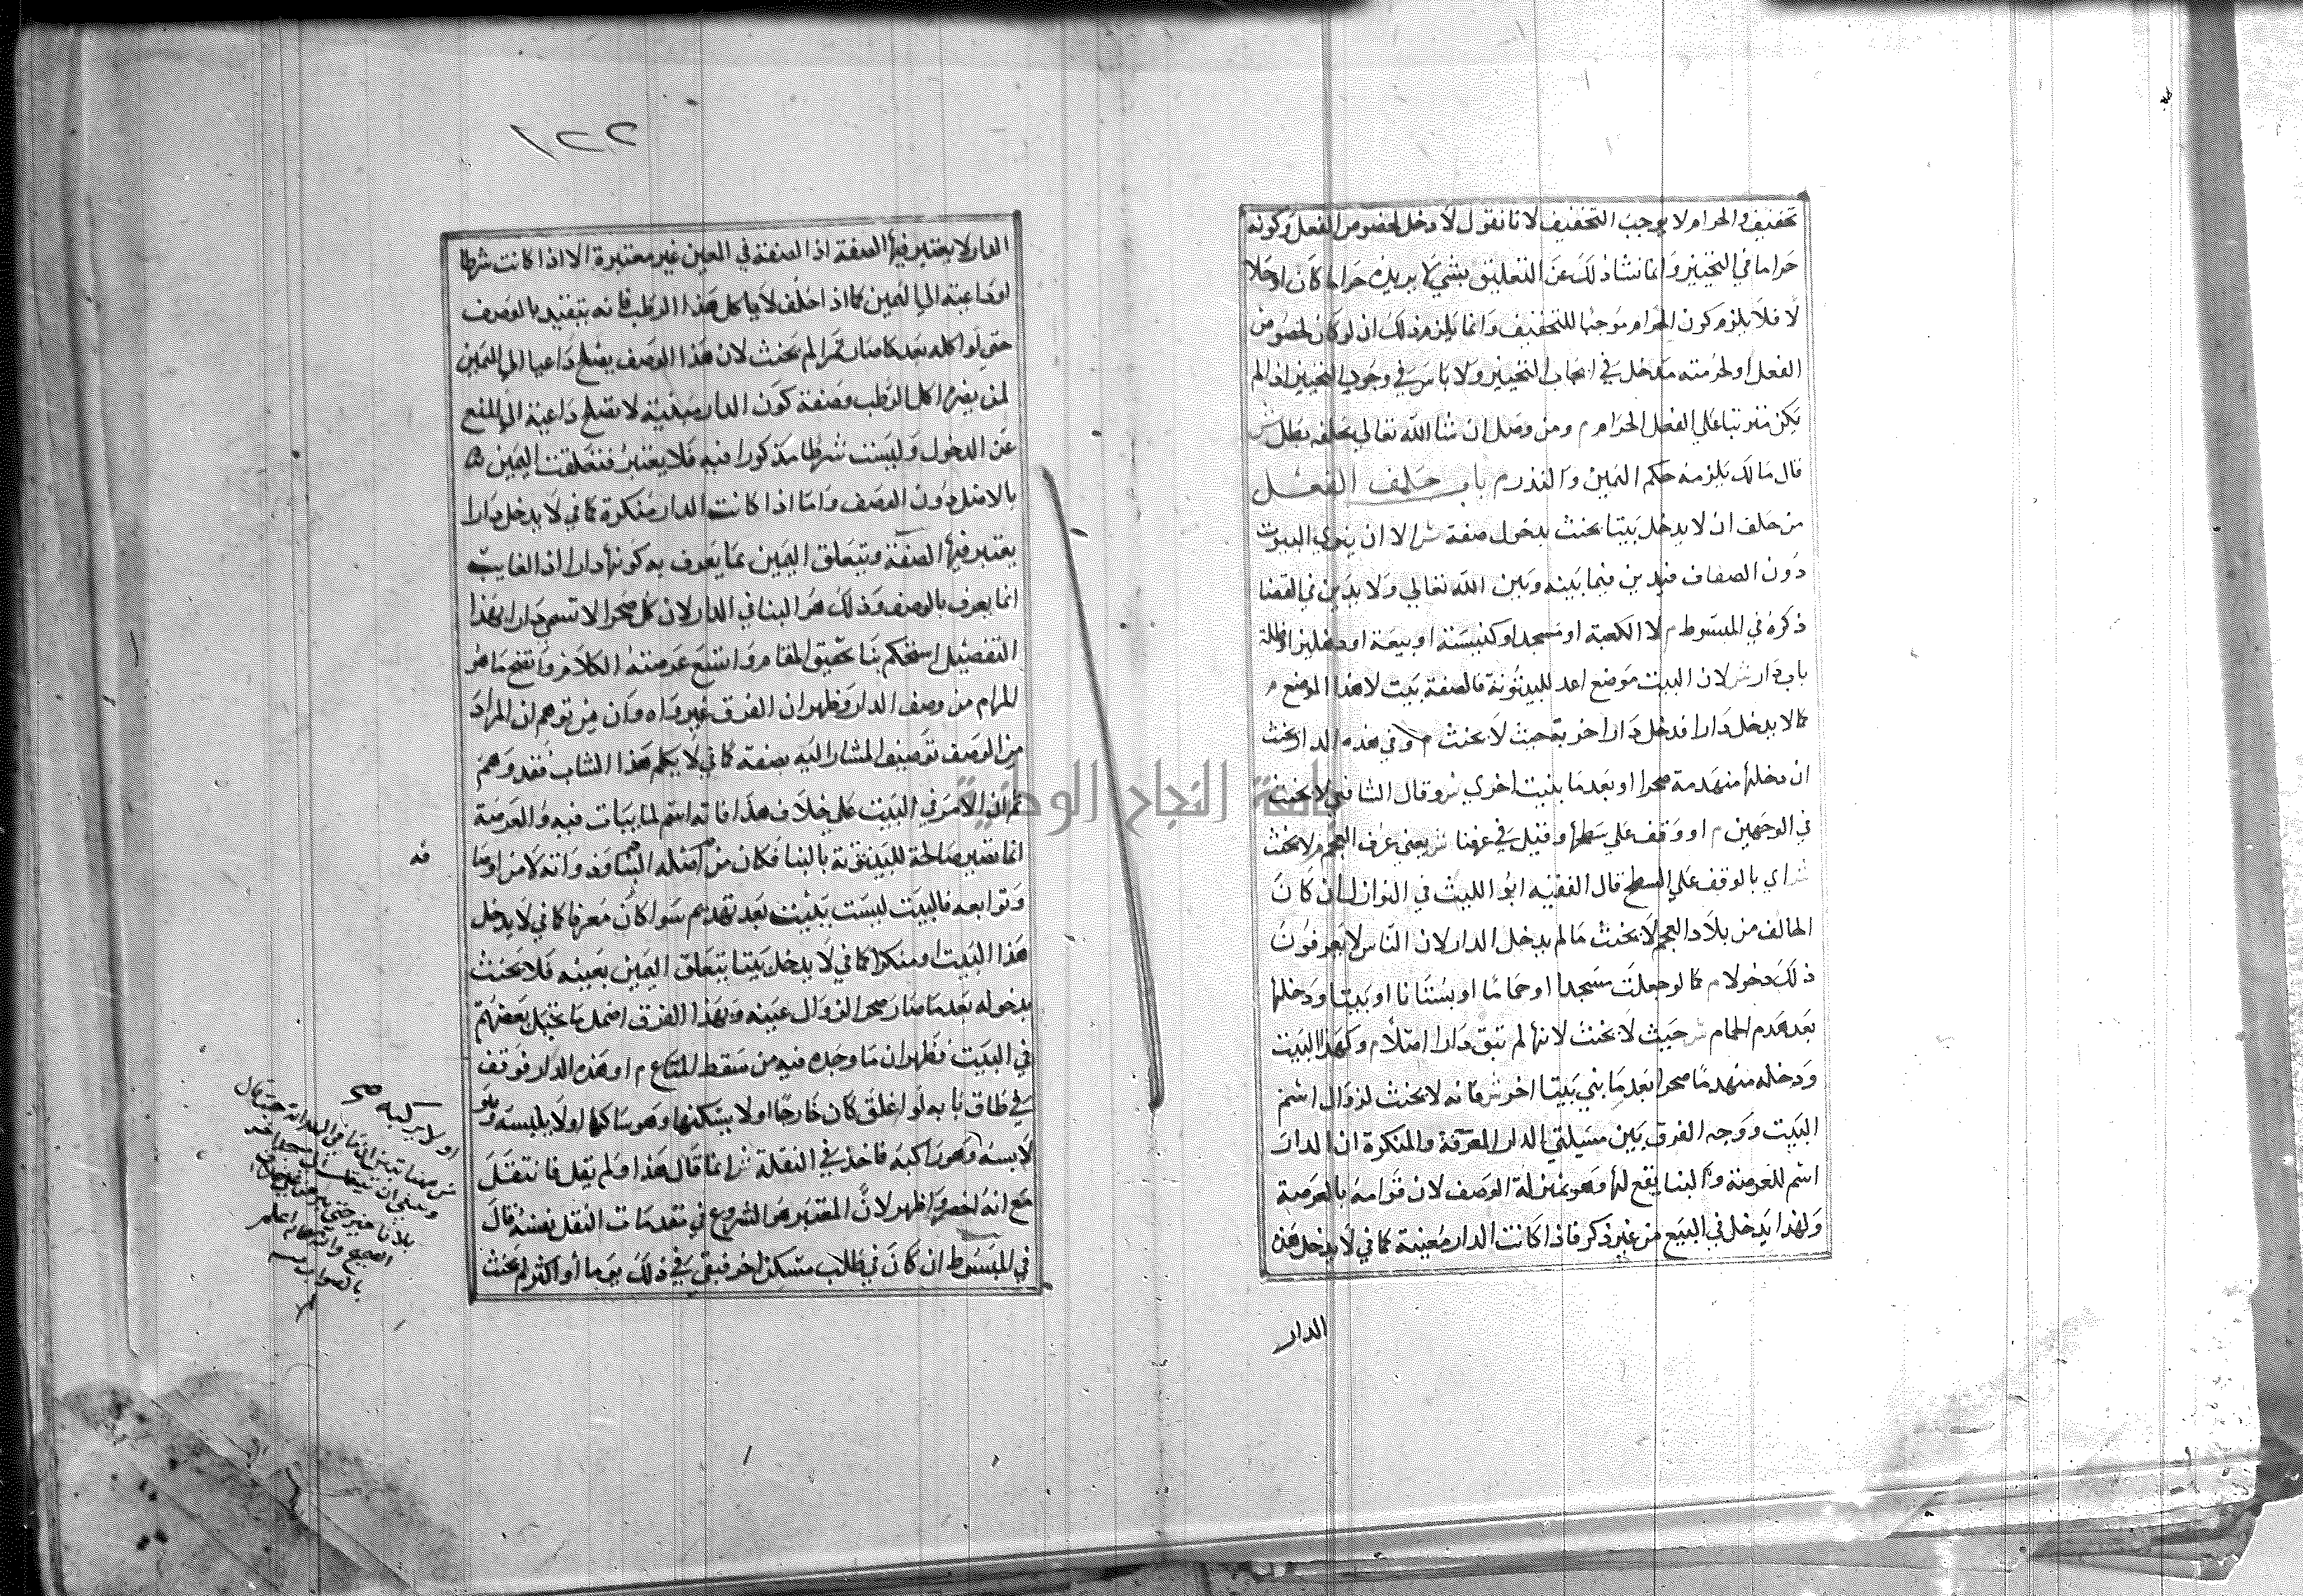 تخفيف والحرام لا يوجب التخفيف لانا نقول لا دخل لخصوص الفعل وكونه
حراما في التخيير وانما نشا ذلك عن التعليق بشي لا يريده حراما كان او حلا
لا فلا يلزم كون الحرام موجبا للتخفيف وانما يلزم ذلك ان لو كان لخصوص
الفعل او لحرمته مدخل في ايجاب التخيير ولا باس في وجود التخيير اذا لم
يكن مترتبا على الفعل الحرام م ومن وصل ان شا الله تعالي بحلفه بطل ش
قال مالك يلزمه حكم اليمين والنذر م باب حلف الفعل
من حلف ان لا يدخل بيتا يحنث بدخول صفة ش الا ان ينوي البيوت
دون الصفاف فيدين فيما بينه وبين الله تعالي ولا يدين في القضا
ذكره في المبسوط م لا الكعبة او مسجد او كنيسة او بيعة او دهليز او ظلة
باب دار ش لان البيت موضع اعد للبيتوتة فالصفة بيت لا هذا الموضع م
كما لا يدخل دارا فدخل دارا خربة حيث لا يحنث م وفي هذه الدار يحنث
ان دخلها منهدمة صحرا او بعد ما بنيت اخري ش وقال الشافعي لا يحنث
في الوجهين م او وقف علي سطحها وقيل في عرفنا ش يعني عرف العجم م لا يحنث
ش اي بالوقف علي السطح قال الفقيه ابو الليث في النوازل ان كان
الحالف من بلاد العجم لا يحنث مالم يدخل الدار لان الناس لا يعرفون
ذلك دخولا م كما لو جعلت مسجدا او حماما او بستانا او بيتا ودخلها
بعد هدم الحمام ش حيث لا يحنث لانها لم تبق دارا اصلا م وكهذا البيت
ودخله منهدما صحرا بعد ما بني بيتا اخر ش فانه لا يحنث لزوال اسم
البيت ووجه الفرق بين مسيلتي الدار المعرفة والمنكرة ان الدار
اسم للعرصة والبنا يقع لها وهو بمنزلة الوصف لان قوامه بالعرصة
ولهذا يدخل في البيع من غير ذكر فاذا كانت الدار معينة كما في لا يدخل هذه
الدار
١٢٢
الدار لا يعتبر فيها الصفة اذ الصفة في المعين غير معتبرة الا اذا كانت شرطا
او داعية الي اليمين كما اذا حلف لا ياكل هذا الرطب فانه يتقيد بالوصف
حتي لو اكله بعد ما صار تمرا لم يحنث لان هذا الوصف يصلح داعيا الي اليمين
لمن يضره اكل الرطب وصفة كون الدار مبنية لا تصلح داعية الي المنع
عن الدخول وليست شرطا مذكورا فيه فلا يعتبر فتعلقت اليمين
بالاصل دون الوصف واما اذا كانت الدار منكرة كما في لا يدخل دارا
يعتبر فيها الصفة ويتعلق اليمين بما يعرف به كونها دارا اذ الغايب
انما يعرف بالوصف وذلك هو البنا في الدار لان كل صحرا لا تسمي دارا بهذا
التفصيل استحكم بنا تحقيق المقام واتسع عرصة الكلام واتضح ما هو
المرام من وصف الدار وظهر ان الفرق غير واه وان من توهم ان المراد
من الوصف توصيف المشار اليه بصفة كما في لا يكلم هذا الشاب فقد وهم
ثم ان الامر في البيت علي خلاف هذا فانه اسم لما يبات فيه والعرصة
انما تصير صالحة للبيتوتة بالبنا فكان من دون وانه لا من اوصا
وتوابعه فالبيت ليست ببيت بعد تهدم سوا كان معرفا كما في لا يدخل
هذا البيت او منكرا كما في لا يدخل بيتا يتعلق اليمين بعينه فلا يحنث
بدخوله بعد ما صار صحرا لزوال عينه وبهذا الفرق اضمحل ما تخيل بعضهم
في البيت فظهر ان ما وجده فيه من سقط المتاع م او هذه الدار فوقف
في طاق باب لو اغلق كان خارجا او لا يسكنها وهو ساكنها او لا يلبسه وهو
لابسه او لا يركبه وهو راكبه فاخذ في النقلة ش انما قال هذا ولم يقل فانتقل
مع انه اخصر واظهر لان المعتبر هو الشروع في مقدمات النقل نفسه قال
في المبسوط ان كان في طلب مسكن اخر فبقي في ذلك يوما او اكثر لم يحنث